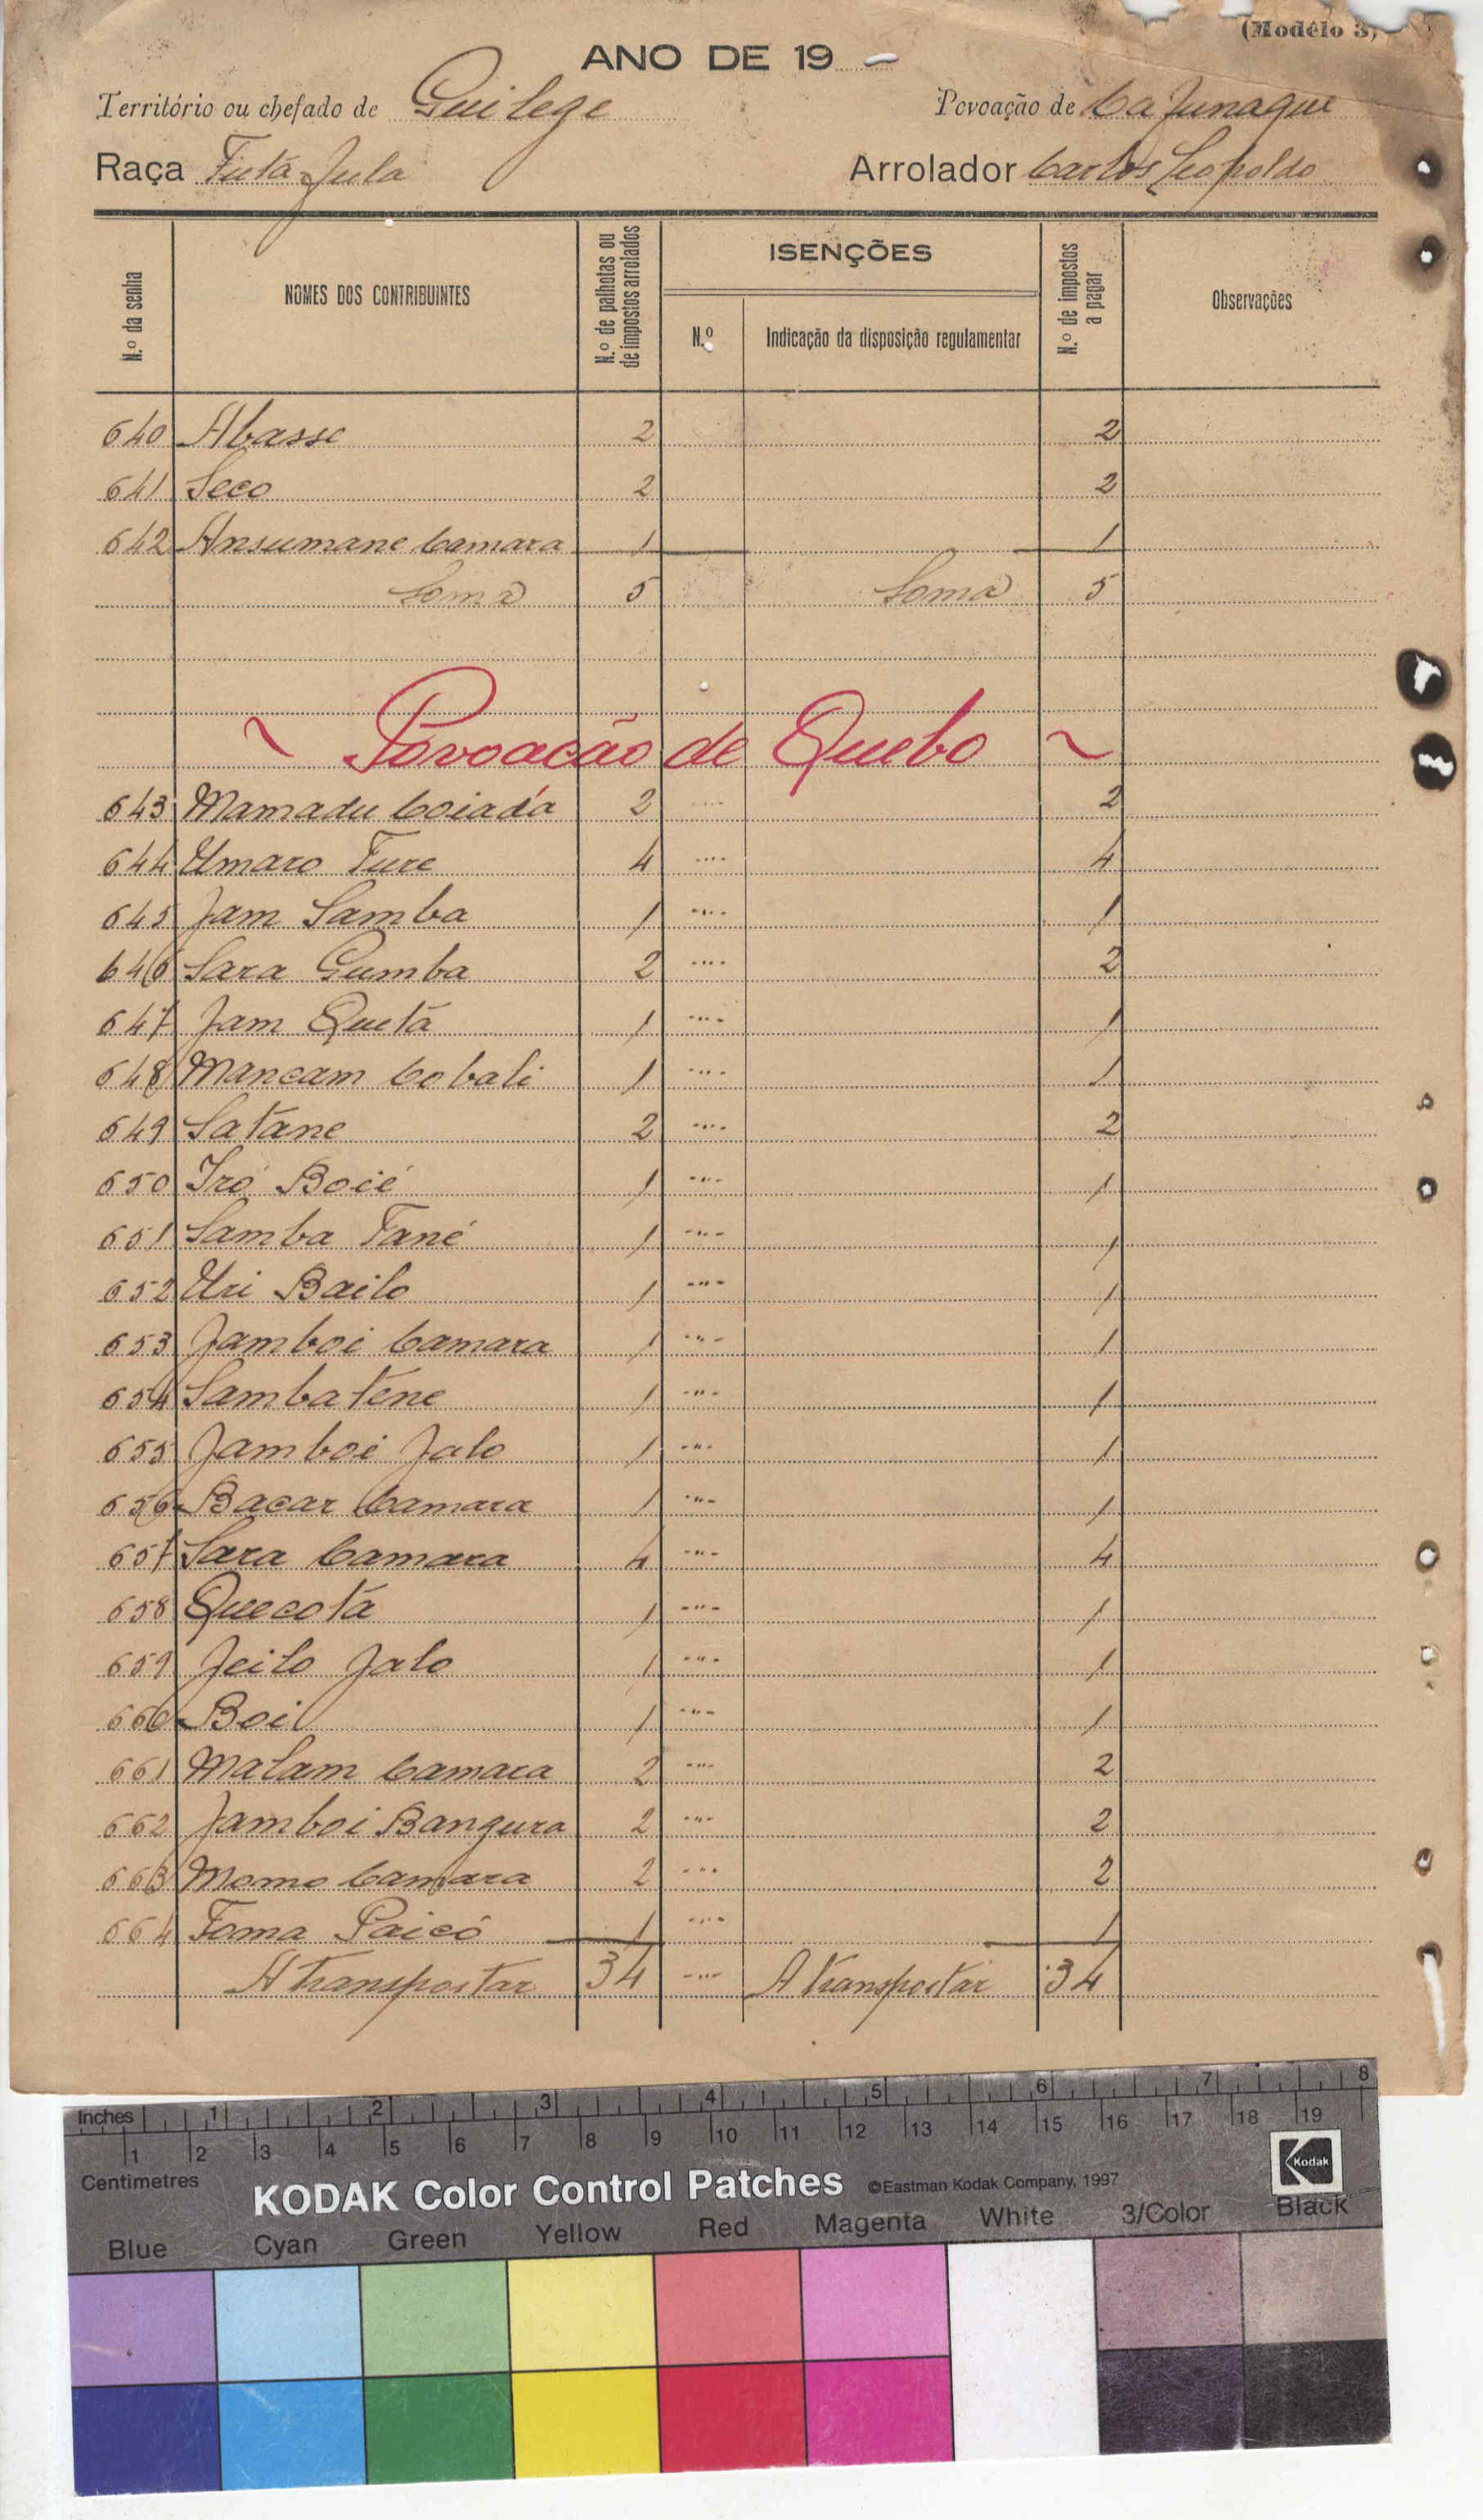 (Modêlo 3)
ANO DE 19 -
Território ou chefado de Guilege Povoação de Cafunaque
Raça Futa-Jula Arrolador Carlos Leopoldo
N.o da senha NOMES DOS CONTRIBUINTES N.o de palhotas ou de impostos arrolados ISENÇÕES N.o de impostos a pagar Observações
N.o Indicação da disposição regulamentar
640 Abasse 2 2
641 Seco 2 2
642 Ansumane Camara 1 1
Soma 5 Soma 5
~ Povoação de Quebo ~
643 Mamadu Coiadá 2 .... 2
644 Umaro Ture 4 .... 4
645 Jam Samba 1 .... 1
646 Sara Gumba 2 .... 2
647 Jam Quetá 1 .... 1
648 Mancam Cobali 1 .... 1
649 Satane 2 .... 2
650 Iró Boié 1 .... 1
651 Samba Tané 1 .... 1
652 Uri Bailo 1 .... 1
653 Jamboi Camara 1 .... 1
654 Sambatene 1 .... 1
655 Jamboi Jalo 1 .... 1
656 Bacar Camara 1 .... 1
657 Sara Camara 4 .... 4
658 Quecotá 1 .... 1
659 Jeilo Jalo 1 .... 1
660 Boi 1 .... 1
661 Malam Camara 2 .... 2
662 Jamboi Bangura 2 .... 2
663 Momo Camara 2 .... 2
664 Foma Paicó 1 .... 1
A transportar 34 .... A transportar 34
Inches 1 2 3 4 5 6 7 8
1 2 3 4 5 6 7 8 9 10 11 12 13 14 15 16 17 18 19
Centimetres
KODAK Color Control Patches ©Eastman Kodak Company, 1997 Kodak
Blue Cyan Green Yellow Red Magenta White 3/Color Black